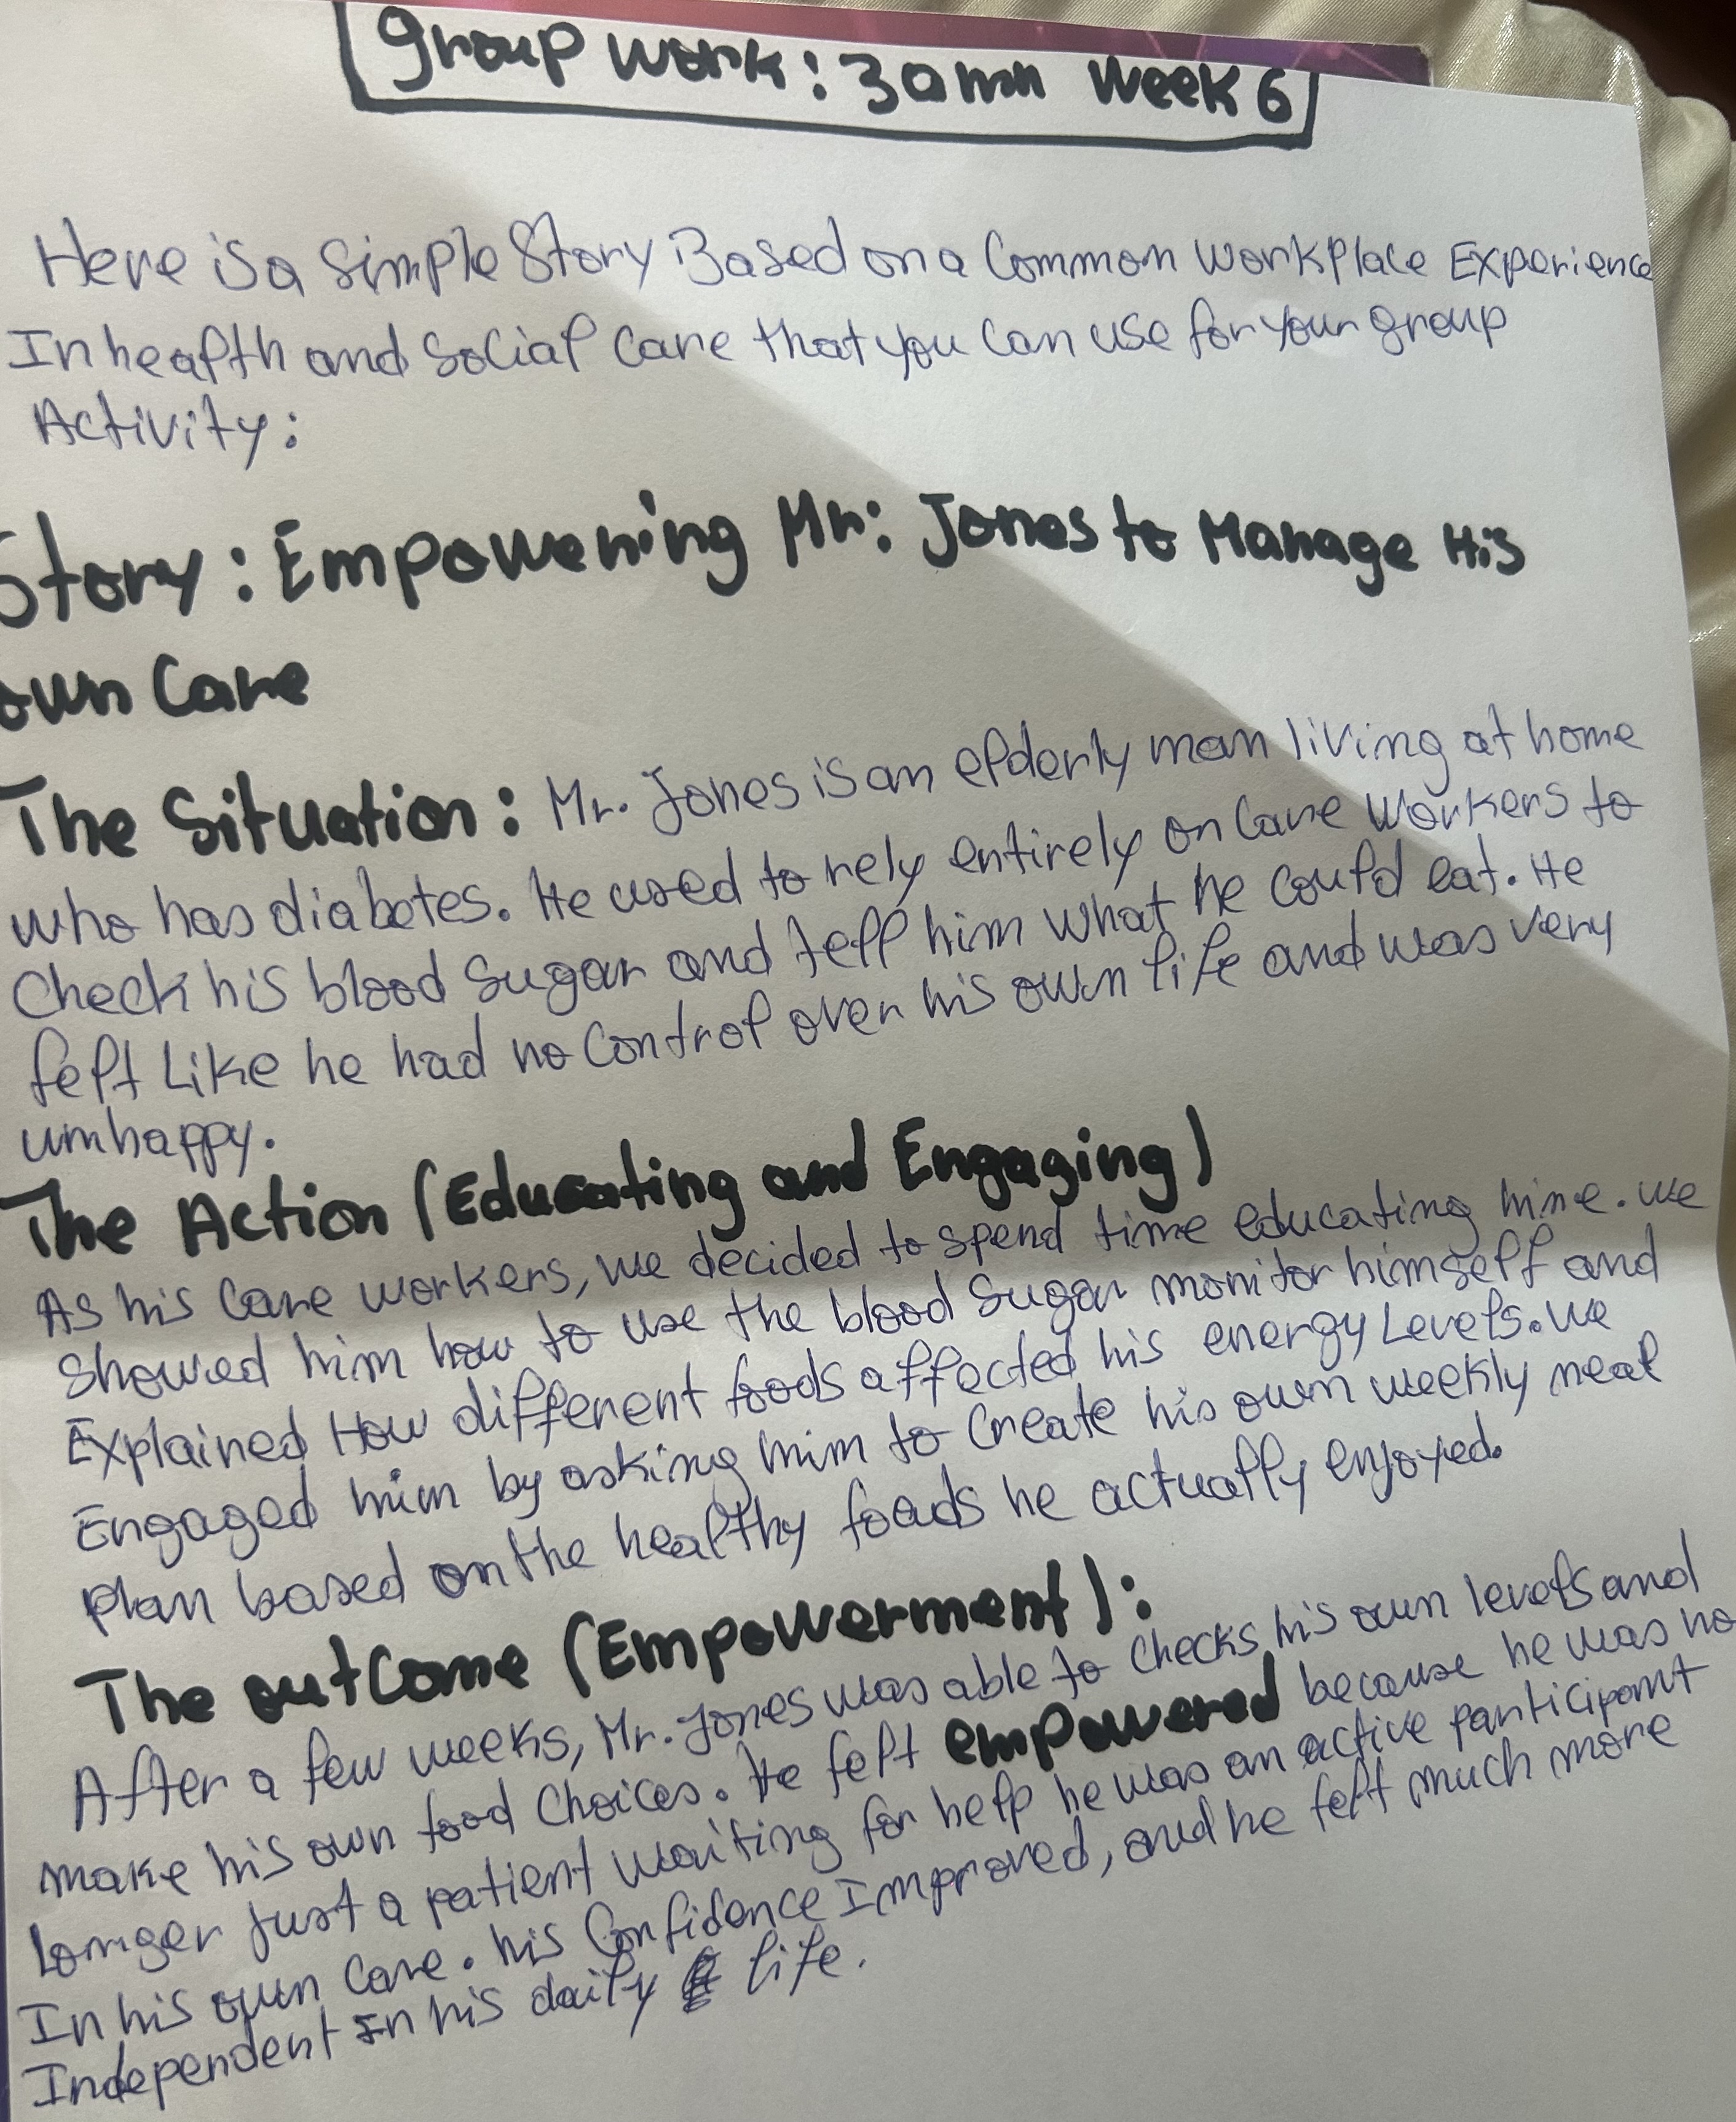 Group Work: 30 mn Week 6
Here is a Simple Story Based on a Common Workplace Experience
In health and Social Care that you can use for your group
Activity:
Story: Empowering Mr: Jones to Manage His
own Care
The Situation: Mr. Jones is an elderly man living at home
who has diabetes. He used to rely entirely on Care Workers to
Check his blood Sugar and tell him what he could eat. He
felt Like he had no Control over his own life and was very
umhappy.
The Action (Educating and Engaging)
As his Care workers, we decided to spend time educating hime. We
Showed him how to use the blood Sugar monitor himself and
Explained How different foods affected his energy Levels. We
Engaged him by asking him to Create his own weekly meal
Plan based on the healthy foods he actually enjoyed.
The outcome (Empowerment):
After a few weeks, Mr. Jones was able to Checks his own levels and
make his own food Choices. He felt empowered because he was no
Longer just a patient waiting for help he was an active participant
In his own Care. his Confidence Improved, and he felt much more
Independent In his daily life.